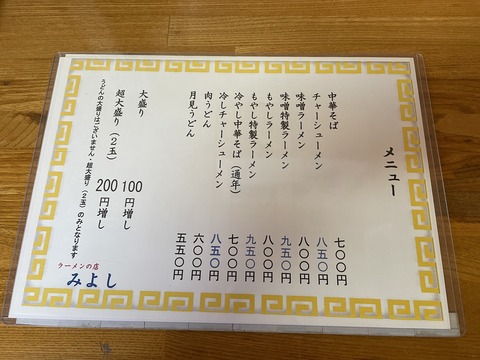 メニュー
中華そば 七〇〇円
チャーシューメン 八五〇円
味噌ラーメン 八〇〇円
味噌特製ラーメン 九五〇円
もやしラーメン 八〇〇円
もやし特製ラーメン 九五〇円
冷やし中華そば（通年） 七〇〇円
冷しチャーシューメン 八五〇円
肉うどん 六〇〇円
月見うどん 五五〇円
大盛り 100円増し
超大盛り（2玉） 200円増し
うどんの大盛りはございません・超大盛り（2玉）のみとなります
ラーメンの店
みよし